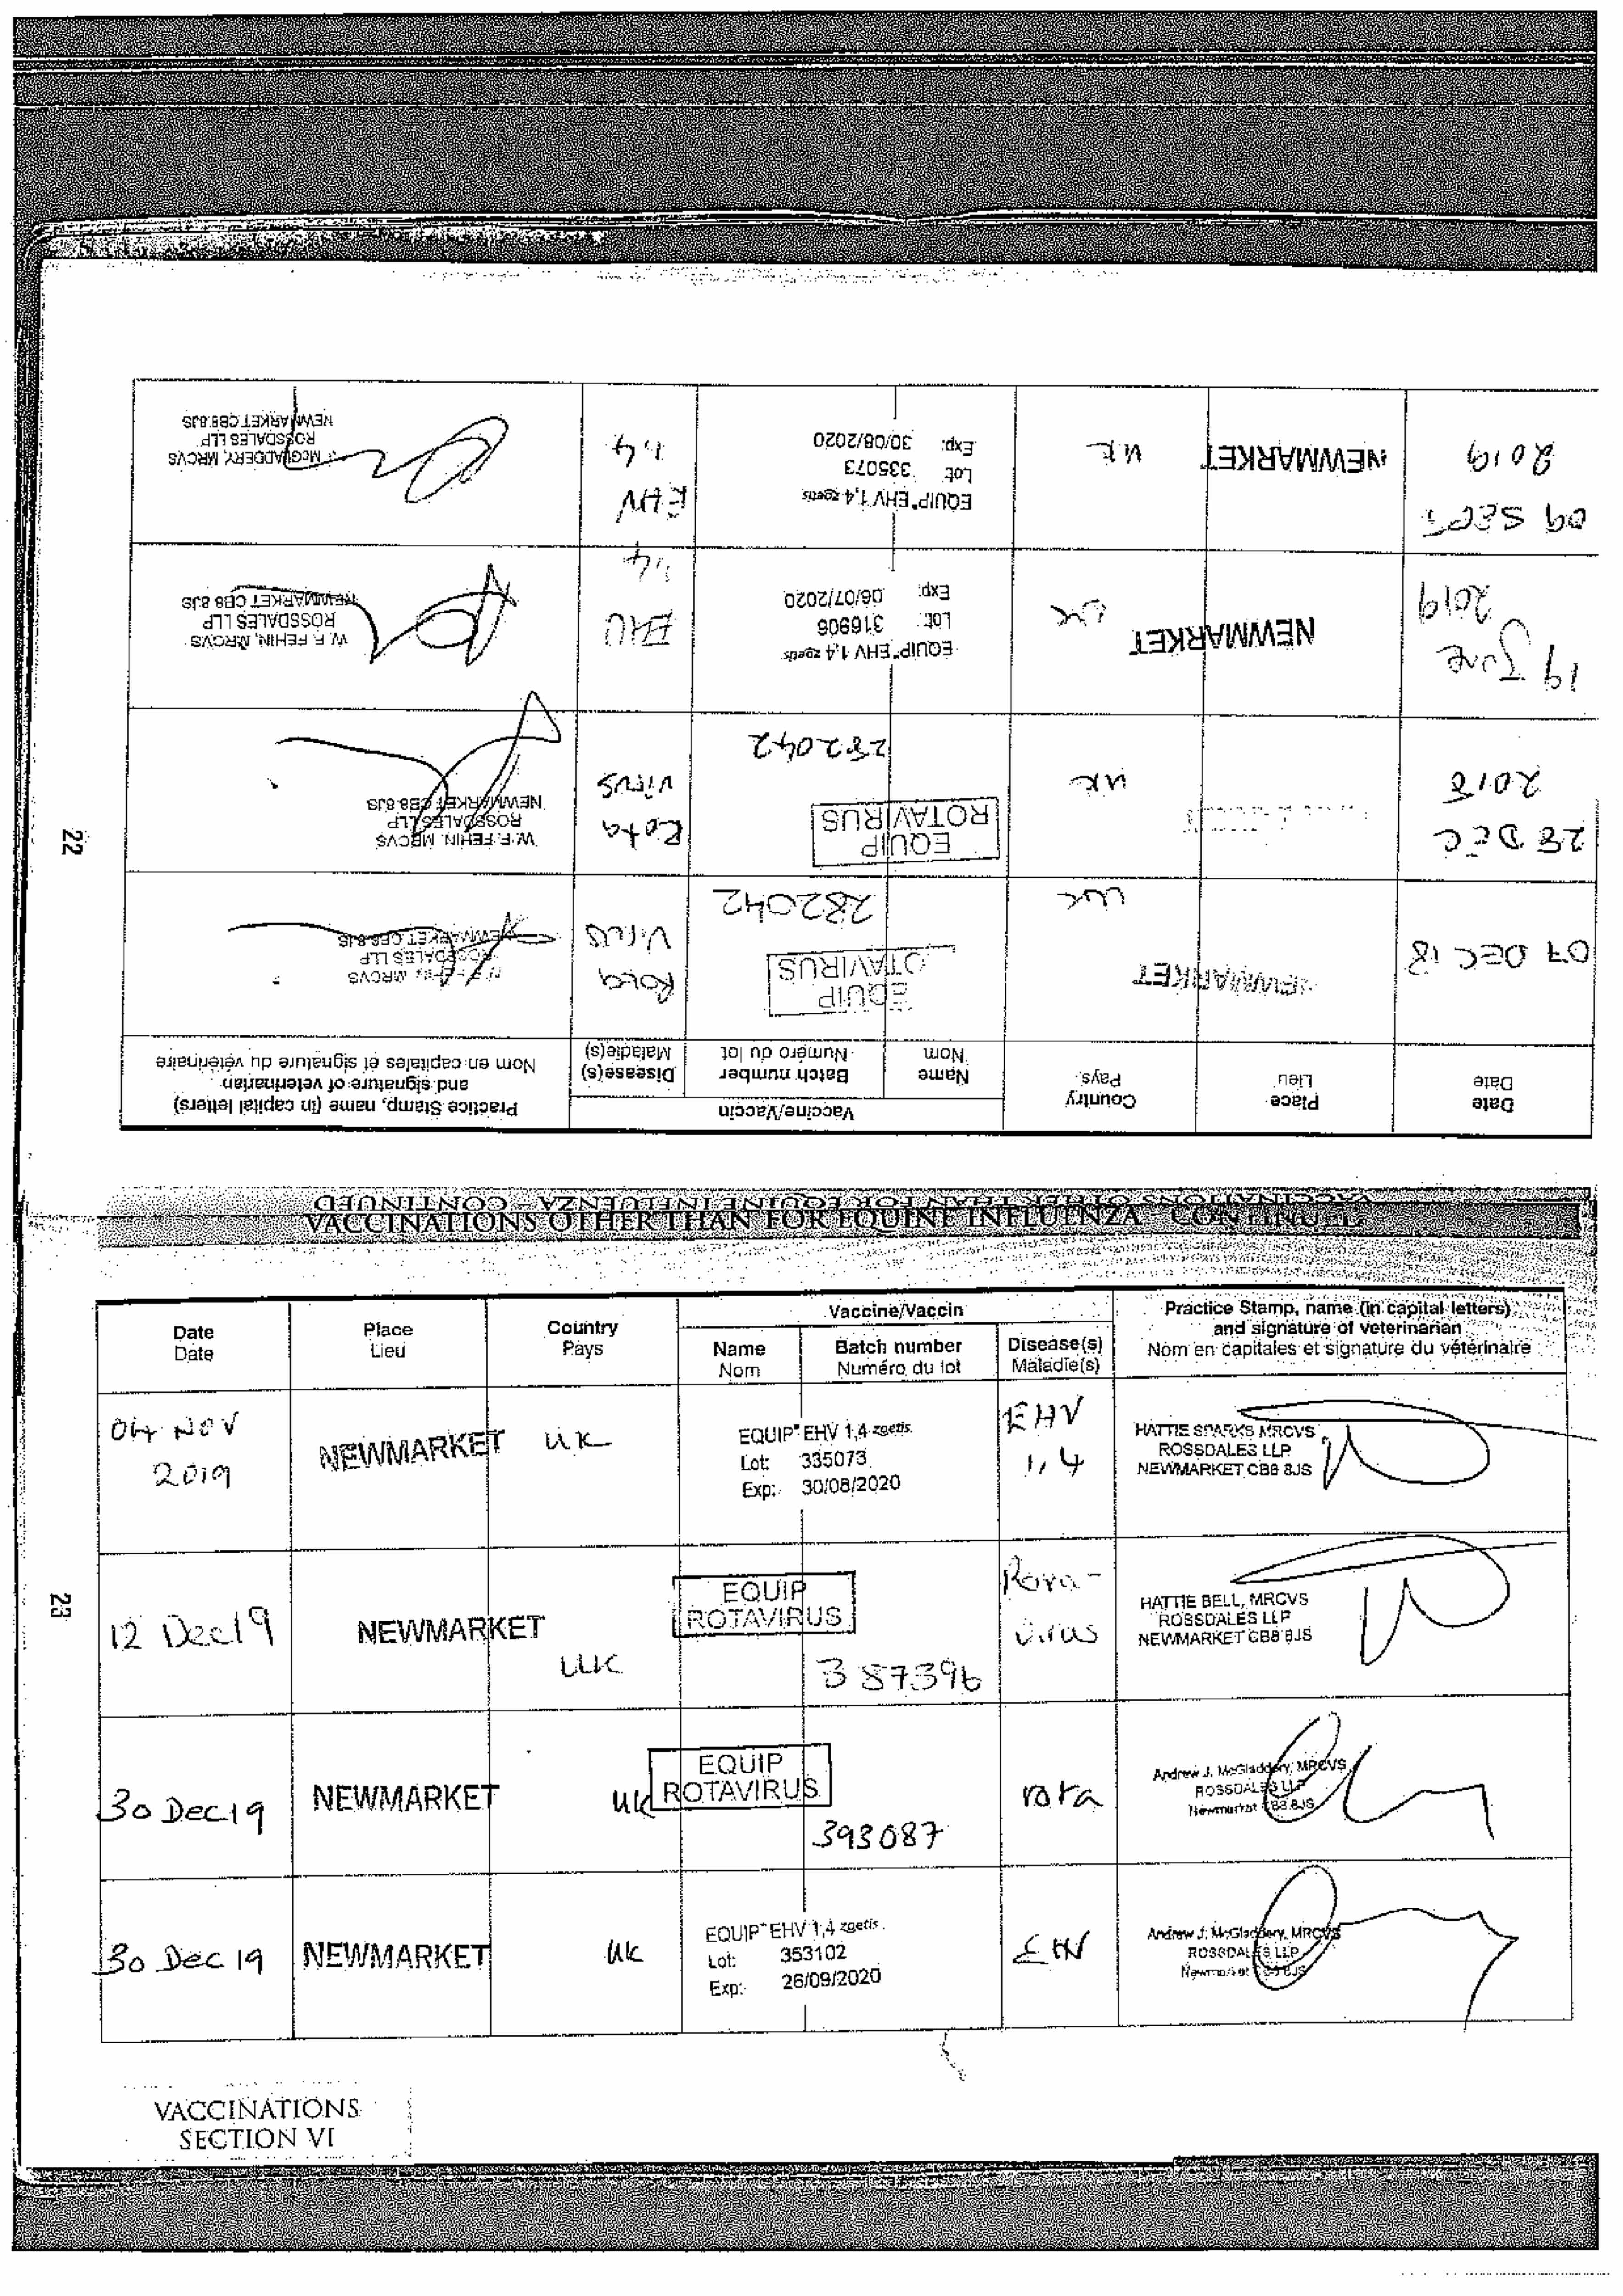 VACCINATIONS OTHER THAN FOR EQUINE INFLUENZA CONTINUED
Date
Date
Place
Lieu
Country
Pays
Vaccine/Vaccin
Name
Nom
Batch number
Numéro du lot
Disease(s)
Maladie(s)
Practice Stamp, name (in capital letters)
and signature of veterinarian
Nom en capitales et signature du vétérinaire
07 DEC 18
NEWMARKET
UK
EQUIP
ROTAVIRUS
282042
Rota
Virus
MRCVS
ROSSDALES LLP
NEWMARKET CB8 8JS
28 DEC
2018
UK
EQUIP
ROTAVIRUS
282042
Rota
virus
W. F. FEHIN, MRCVS
ROSSDALES LLP
NEWMARKET CB8 8JS
19 June
2019
NEWMARKET
UK
EQUIP EHV 1,4 zoetis
Lot: 316906
Exp: 06/07/2020
EHV
1,4
W. F. FEHIN, MRCVS
ROSSDALES LLP
NEWMARKET CB8 8JS
09 SEPT
2019
NEWMARKET
UK
EQUIP EHV 1,4 zoetis
Lot: 335073
Exp: 30/08/2020
EHV
1,4
McGLADDERY, MRCVS
ROSSDALES LLP
NEWMARKET CB8 8JS
22
VACCINATIONS OTHER THAN FOR EQUINE INFLUENZA CONTINUED
Date
Date
Place
Lieu
Country
Pays
Vaccine/Vaccin
Name
Nom
Batch number
Numéro du lot
Disease(s)
Maladie(s)
Practice Stamp, name (in capital letters)
and signature of veterinarian
Nom en capitales et signature du vétérinaire
04 NOV
2019
NEWMARKET
UK
EQUIP EHV 1,4 zoetis
Lot: 335073
Exp: 30/08/2020
EHV
1,4
HATTIE SPARKS MRCVS
ROSSDALES LLP
NEWMARKET CB8 8JS
12 Dec 19
NEWMARKET
UK
EQUIP
ROTAVIRUS
387396
Rota-
virus
HATTIE BELL, MRCVS
ROSSDALES LLP
NEWMARKET CB8 8JS
30 Dec 19
NEWMARKET
UK
EQUIP
ROTAVIRUS
393087
rota
Andrew J. McGladdery, MRCVS
ROSSDALES LLP
Newmarket CB8 8JS
30 Dec 19
NEWMARKET
UK
EQUIP EHV 1,4 zoetis
Lot: 353102
Exp: 26/09/2020
EHV
Andrew J. McGladdery, MRCVS
ROSSDALES LLP
Newmarket CB8 8JS
23
VACCINATIONS
SECTION VI